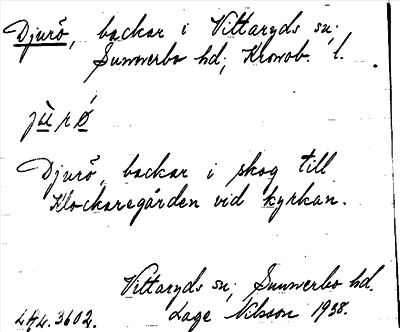 Djurö, backar i Vittaryds sn;
Sunnerbo hd; Kronob. l.
jùrǿ
Djurö, backar i skog till
Klockaregården vid kyrkan.
Vittaryds sn; Sunnerbo hd.
LAL. 3602. Lage Nilsson 1938.